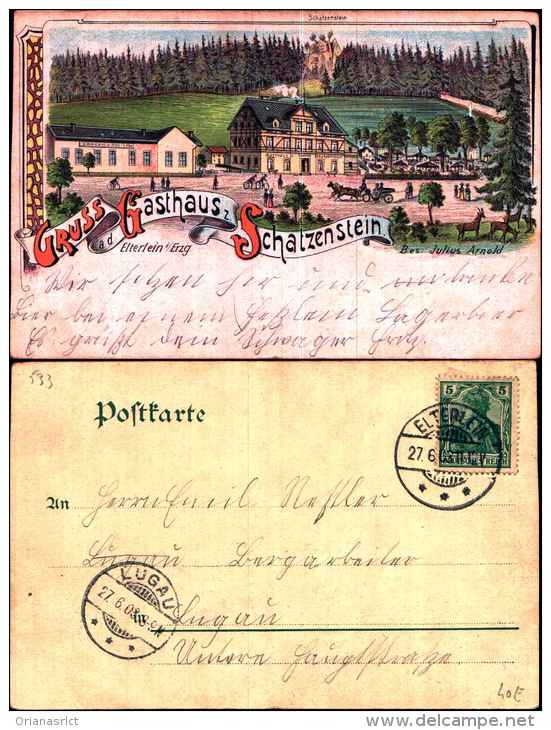 Schatzenstein
Gruss
a.d.
Gasthaus z.
Schatzenstein
Elterlein i/Erzg
Bes: Julius Arnold
Wir sitzen hier und
hier bei einem Lagerbier
Es grüßt dein Schwager
533
Postkarte
5
ELTERLEIN
27.6.
DEUTSCHES REICH
An Herrn Emil Neßler
Lugau Bergarbeiter
LUGAU
27.6.03
in Lugau
Untere Hauptstraße
40E
Orianasrlct
www.delcampe.net